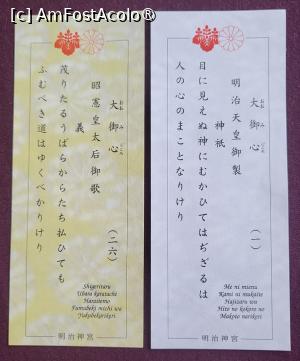 [c] AmFostAcolo®
大御心 （一）
明治天皇御製
神祇
目に見えぬ神にむかひてはぢざるは
人の心のまことなりけり
Me ni mienu
Kami ni mukaite
Hajizaru wa
Hito no kokoro no
Makoto narikeri
明治神宮
大御心 （二六）
昭憲皇太后御歌
義
茂りたるうばらからたち払ひても
ふむべき道はゆくべかりけり
Shigeritaru
Ubara karatachi
Haraitemo
Fumubeki michi wa
Yukubekarikeri
明治神宮